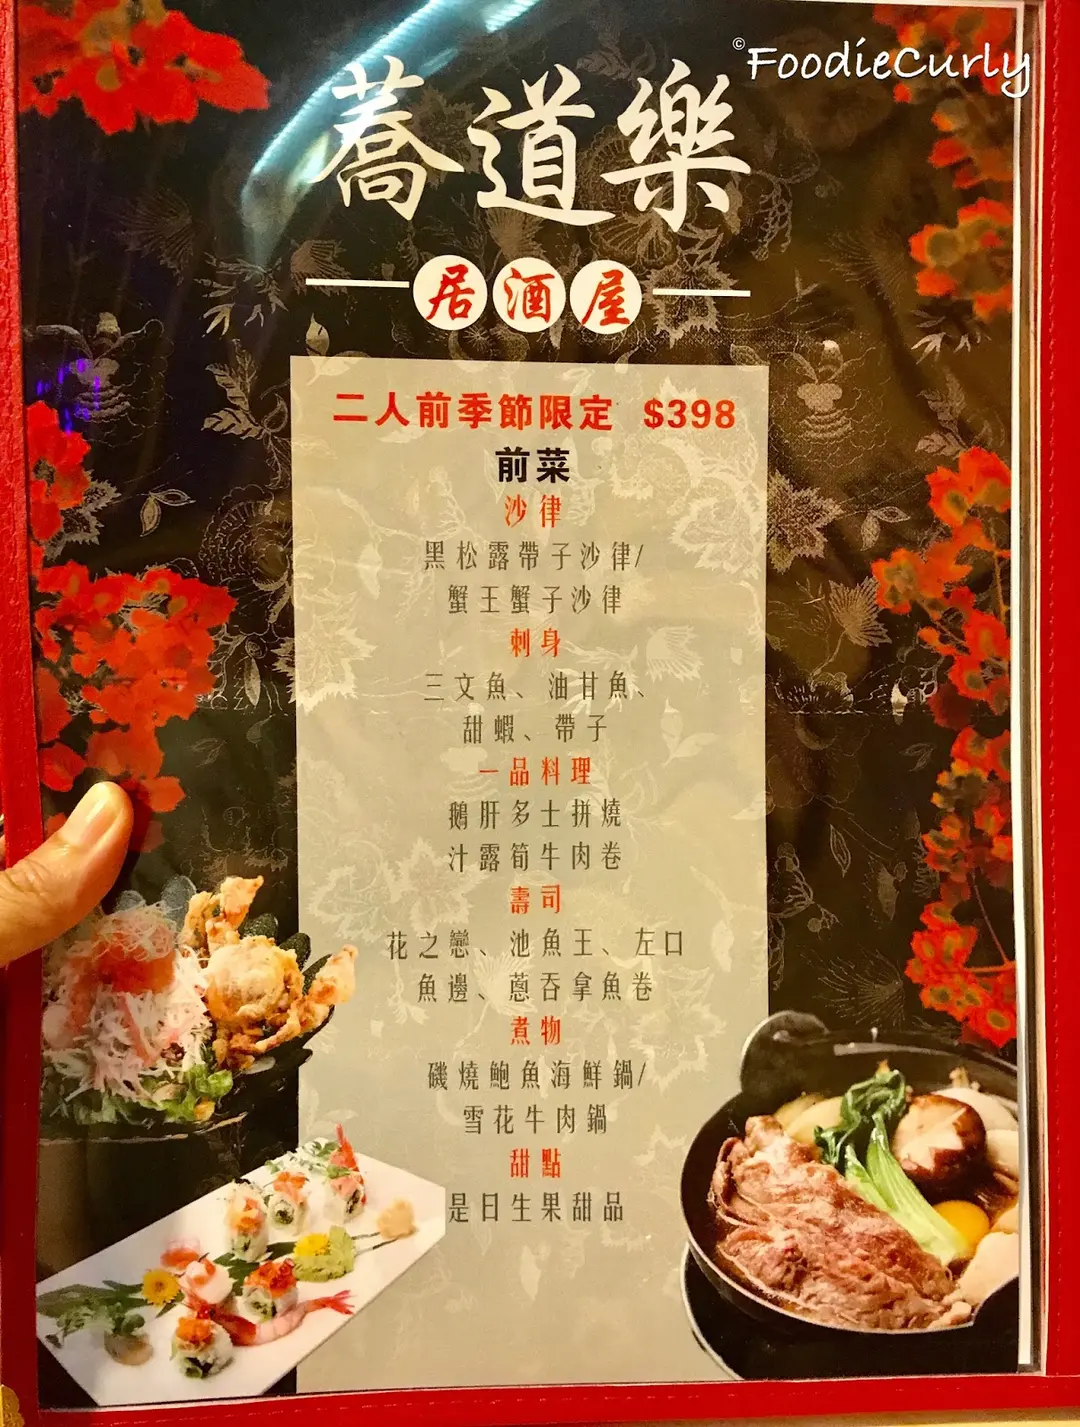 ©FoodieCurly
蕎道樂
居酒屋
二人前季節限定 $398
前菜
沙律
黑松露帶子沙律/
蟹王蟹子沙律
刺身
三文魚、油甘魚、
甜蝦、帶子
一品料理
鵝肝多士拼燒
汁露筍牛肉卷
壽司
花之戀、池魚王、左口
魚邊、蔥吞拿魚卷
煮物
磯燒鮑魚海鮮鍋/
雪花牛肉鍋
甜點
是日生果甜品